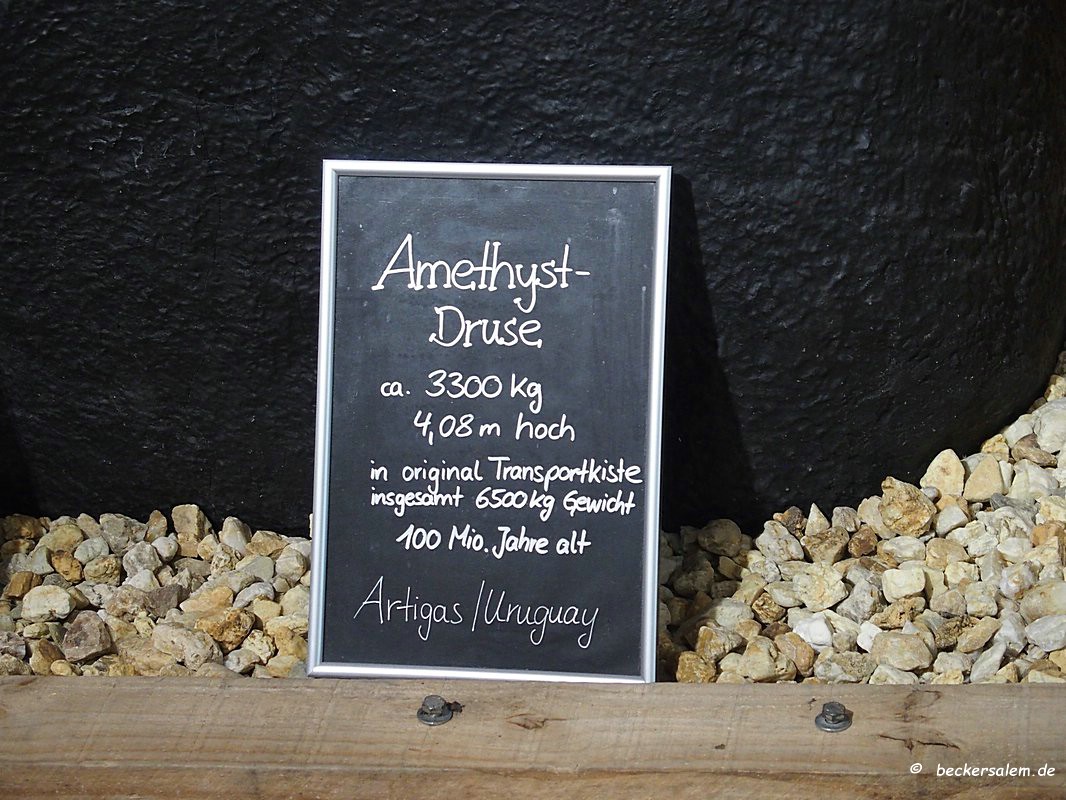 Amethyst-
Druse
ca. 3300 kg
4,08 m hoch
in original Transportkiste
insgesamt 6500 kg Gewicht
100 Mio. Jahre alt
Artigas/Uruguay
© beckersalem.de